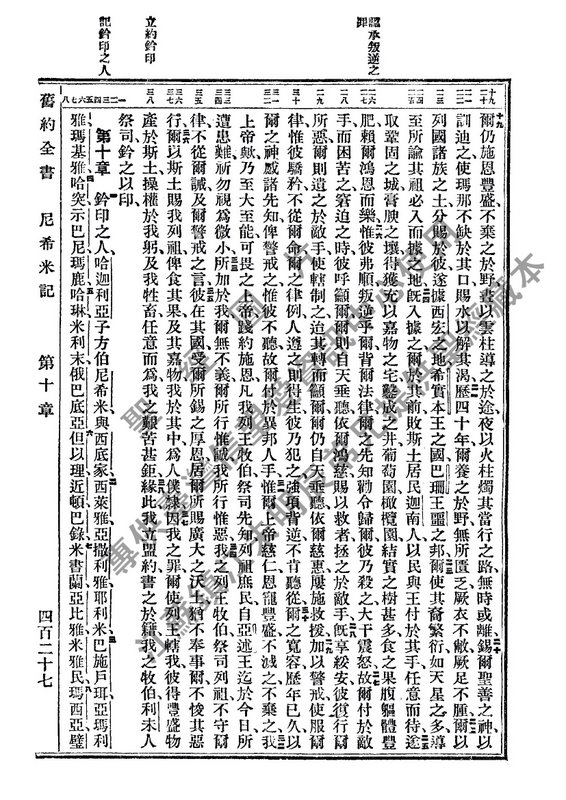 認承叛逆之
罪
立約鈐印
記鈐印之人
爾仍施恩豐盛不棄之於野晝以雲柱導之於途夜以火柱燭其當行之路無時或離錫爾聖善之神以
訓迪之使瑪那不缺於其口賜水以解其渴歷四十年爾養之於野無所匱乏厥衣不敝厥足不腫爾以
列國諸族之土分賜於彼遂據西宏之地希實本王之國巴珊王噩之邦爾使其裔繁衍如天星之多導
至所諭其祖必入而據之地旣入據之爾於其前敗斯土居民迦南人以民與王付於其手任意而待遂
取鞏固之城膏腴之壤得獲充以嘉物之宅鑿成之井葡萄園橄欖園結實之樹甚多食之果腹軀體豐
肥賴爾鴻恩而樂惟彼弗順叛逆乎爾背爾法律爾之先知勸令歸爾彼乃殺之大干震怒故爾付於敵
手而困苦之窘迫之時彼呼籲爾爾則自天垂聽依爾鴻慈賜以救者拯之於敵手旣享綏安彼復行爾
所惡爾則遺之於敵手使轄制之迨其轉而籲爾爾仍自天垂聽依爾慈惠屢施救援加以警戒使服爾
律惟彼驕矜不從爾命爾之律例人遵之則得生彼乃犯之強項背逆不肯聽從爾之寬容歷年已久以
爾之神感諸先知俾警戒之惟彼不聽故爾付於異邦人手惟爾上帝慈仁恩寵豐盛不滅之不棄之我
上帝歟乃至大至能可畏之上帝踐約施恩凡我列王牧伯祭司先知列祖庶民自亞述王迄於今日所
遭患難祈勿視爲微小所加於我爾無不義爾所行惟誠我所行惟惡我之列王牧伯祭司列祖不守爾
律不從爾誡及爾警戒之言彼在其國受爾所錫之厚恩居爾所賜廣大之沃土猶不奉事爾不悛其惡
行爾以斯土賜我列祖俾食其果及其嘉物我於其中爲人僕隸因我之罪爾使列王轄我彼得豐盛物
產於斯土操權於我躬及我牲畜任意而爲我之艱苦甚鉅緣此我立盟約書之於籍我之牧伯利未人
祭司鈐之以印
第十章 鈐印之人哈迦利亞子方伯尼希米與西底家西萊雅亞撒利雅耶利米巴施戶珥亞瑪利
雅瑪基雅哈突示巴尼瑪鹿哈琳米利末俄巴底亞但以理近頓巴錄米書蘭亞比雅米雅民瑪西亞璧
舊約全書 尼希米記 第十章 四百二十七